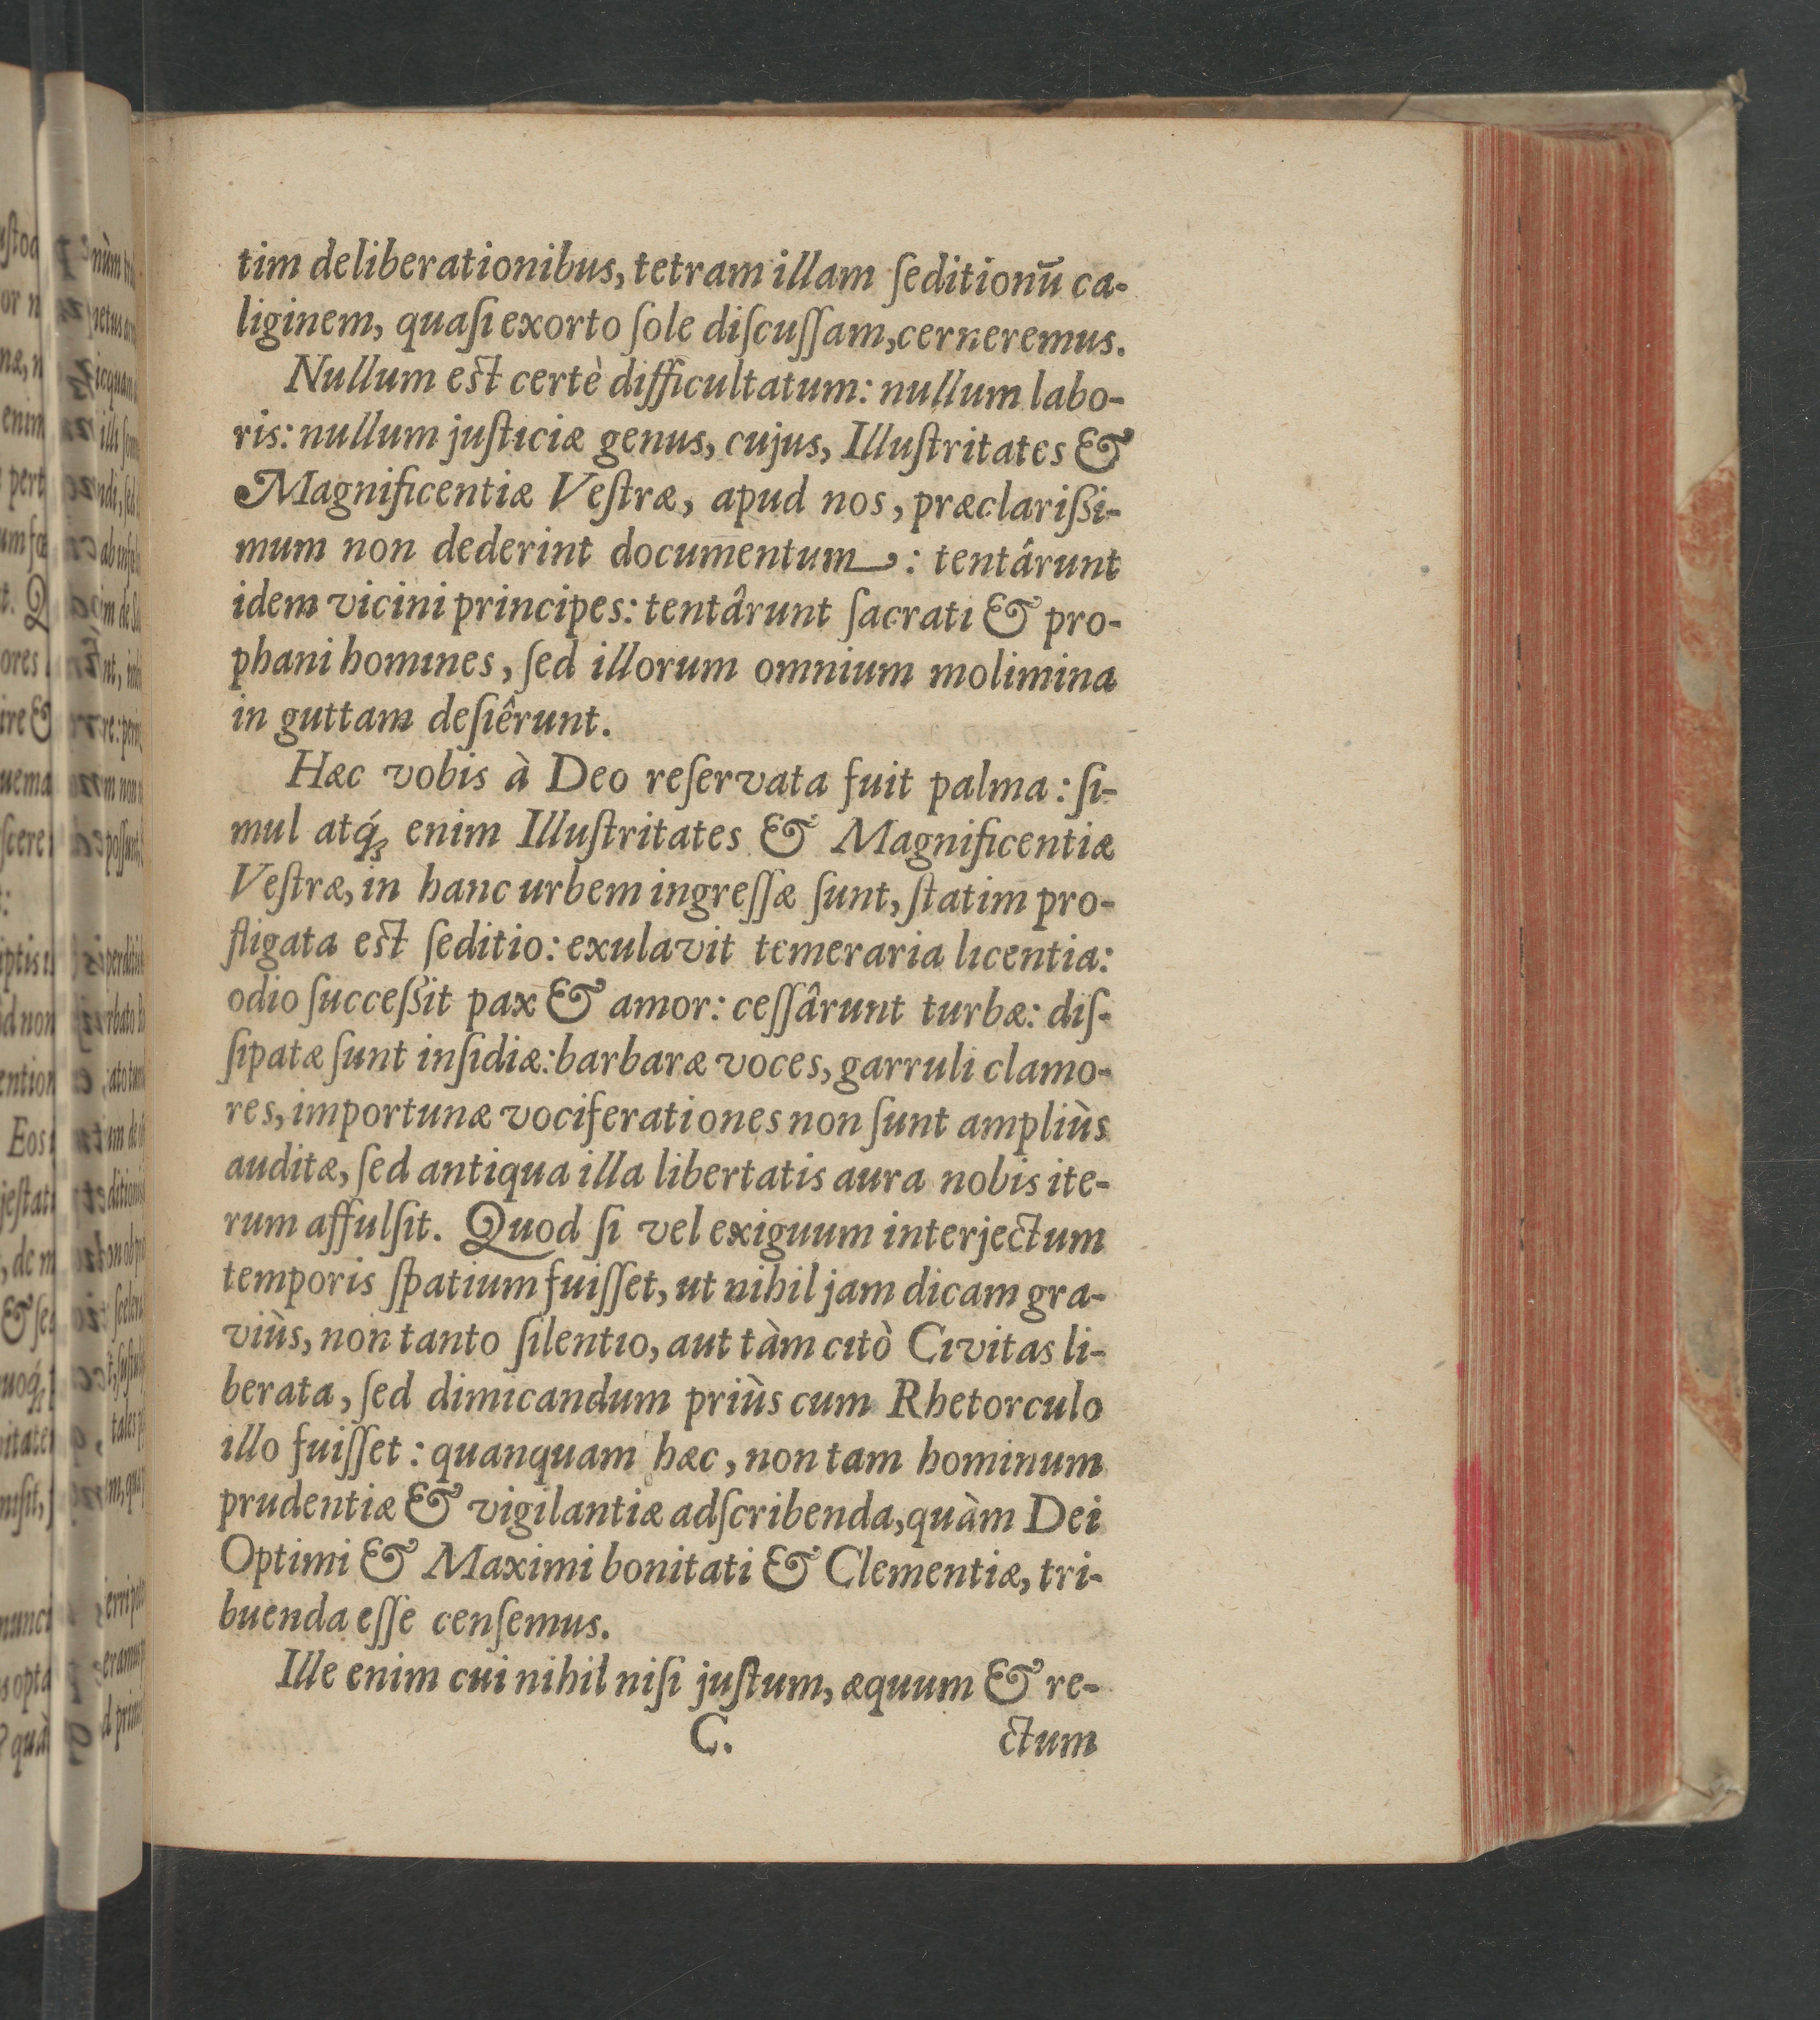 tim deliberationibus, tetram illam ſeditionū ca-
liginem, quaſi exorto ſole diſcuſſam, cerneremus.
Nullum est certè difficultatum: nullum labo-
ris: nullum juſticiæ genus, cujus, Illuſtritates &
Magnificentiæ Veſtræ, apud nos, præclariſsi-
mum non dederint documentum: tentârunt
idem vicini principes: tentârunt ſacrati & pro-
phani homines, ſed illorum omnium molimina
in guttam deſiêrunt.
Hæc vobis à Deo reſervata fuit palma: ſi-
mul atq́; enim Illuſtritates & Magnificentiæ
Veſtræ, in hanc urbem ingreſſæ ſunt, ſtatim pro-
fligata est ſeditio: exulavit temeraria licentia:
odio ſucceſsit pax & amor: ceſſârunt turbæ: diſ-
ſipatæ ſunt inſidiæ: barbaræ voces, garruli clamo-
res, importunæ vociferationes non ſunt ampliùs
auditæ, ſed antiqua illa libertatis aura nobis ite-
rum affulſit. Quod ſi vel exiguum interjectum
temporis ſpatium fuiſſet, ut nihil jam dicam gra-
viùs, non tanto ſilentio, aut tàm citò Civitas li-
berata, ſed dimicandum priùs cum Rhetorculo
illo fuiſſet: quanquam hæc, non tam hominum
prudentiæ & vigilantiæ adſcribenda, quàm Dei
Optimi & Maximi bonitati & Clementiæ, tri-
buenda eſſe cenſemus.
Ille enim cui nihil niſi juſtum, æquum & re-
C. ctum